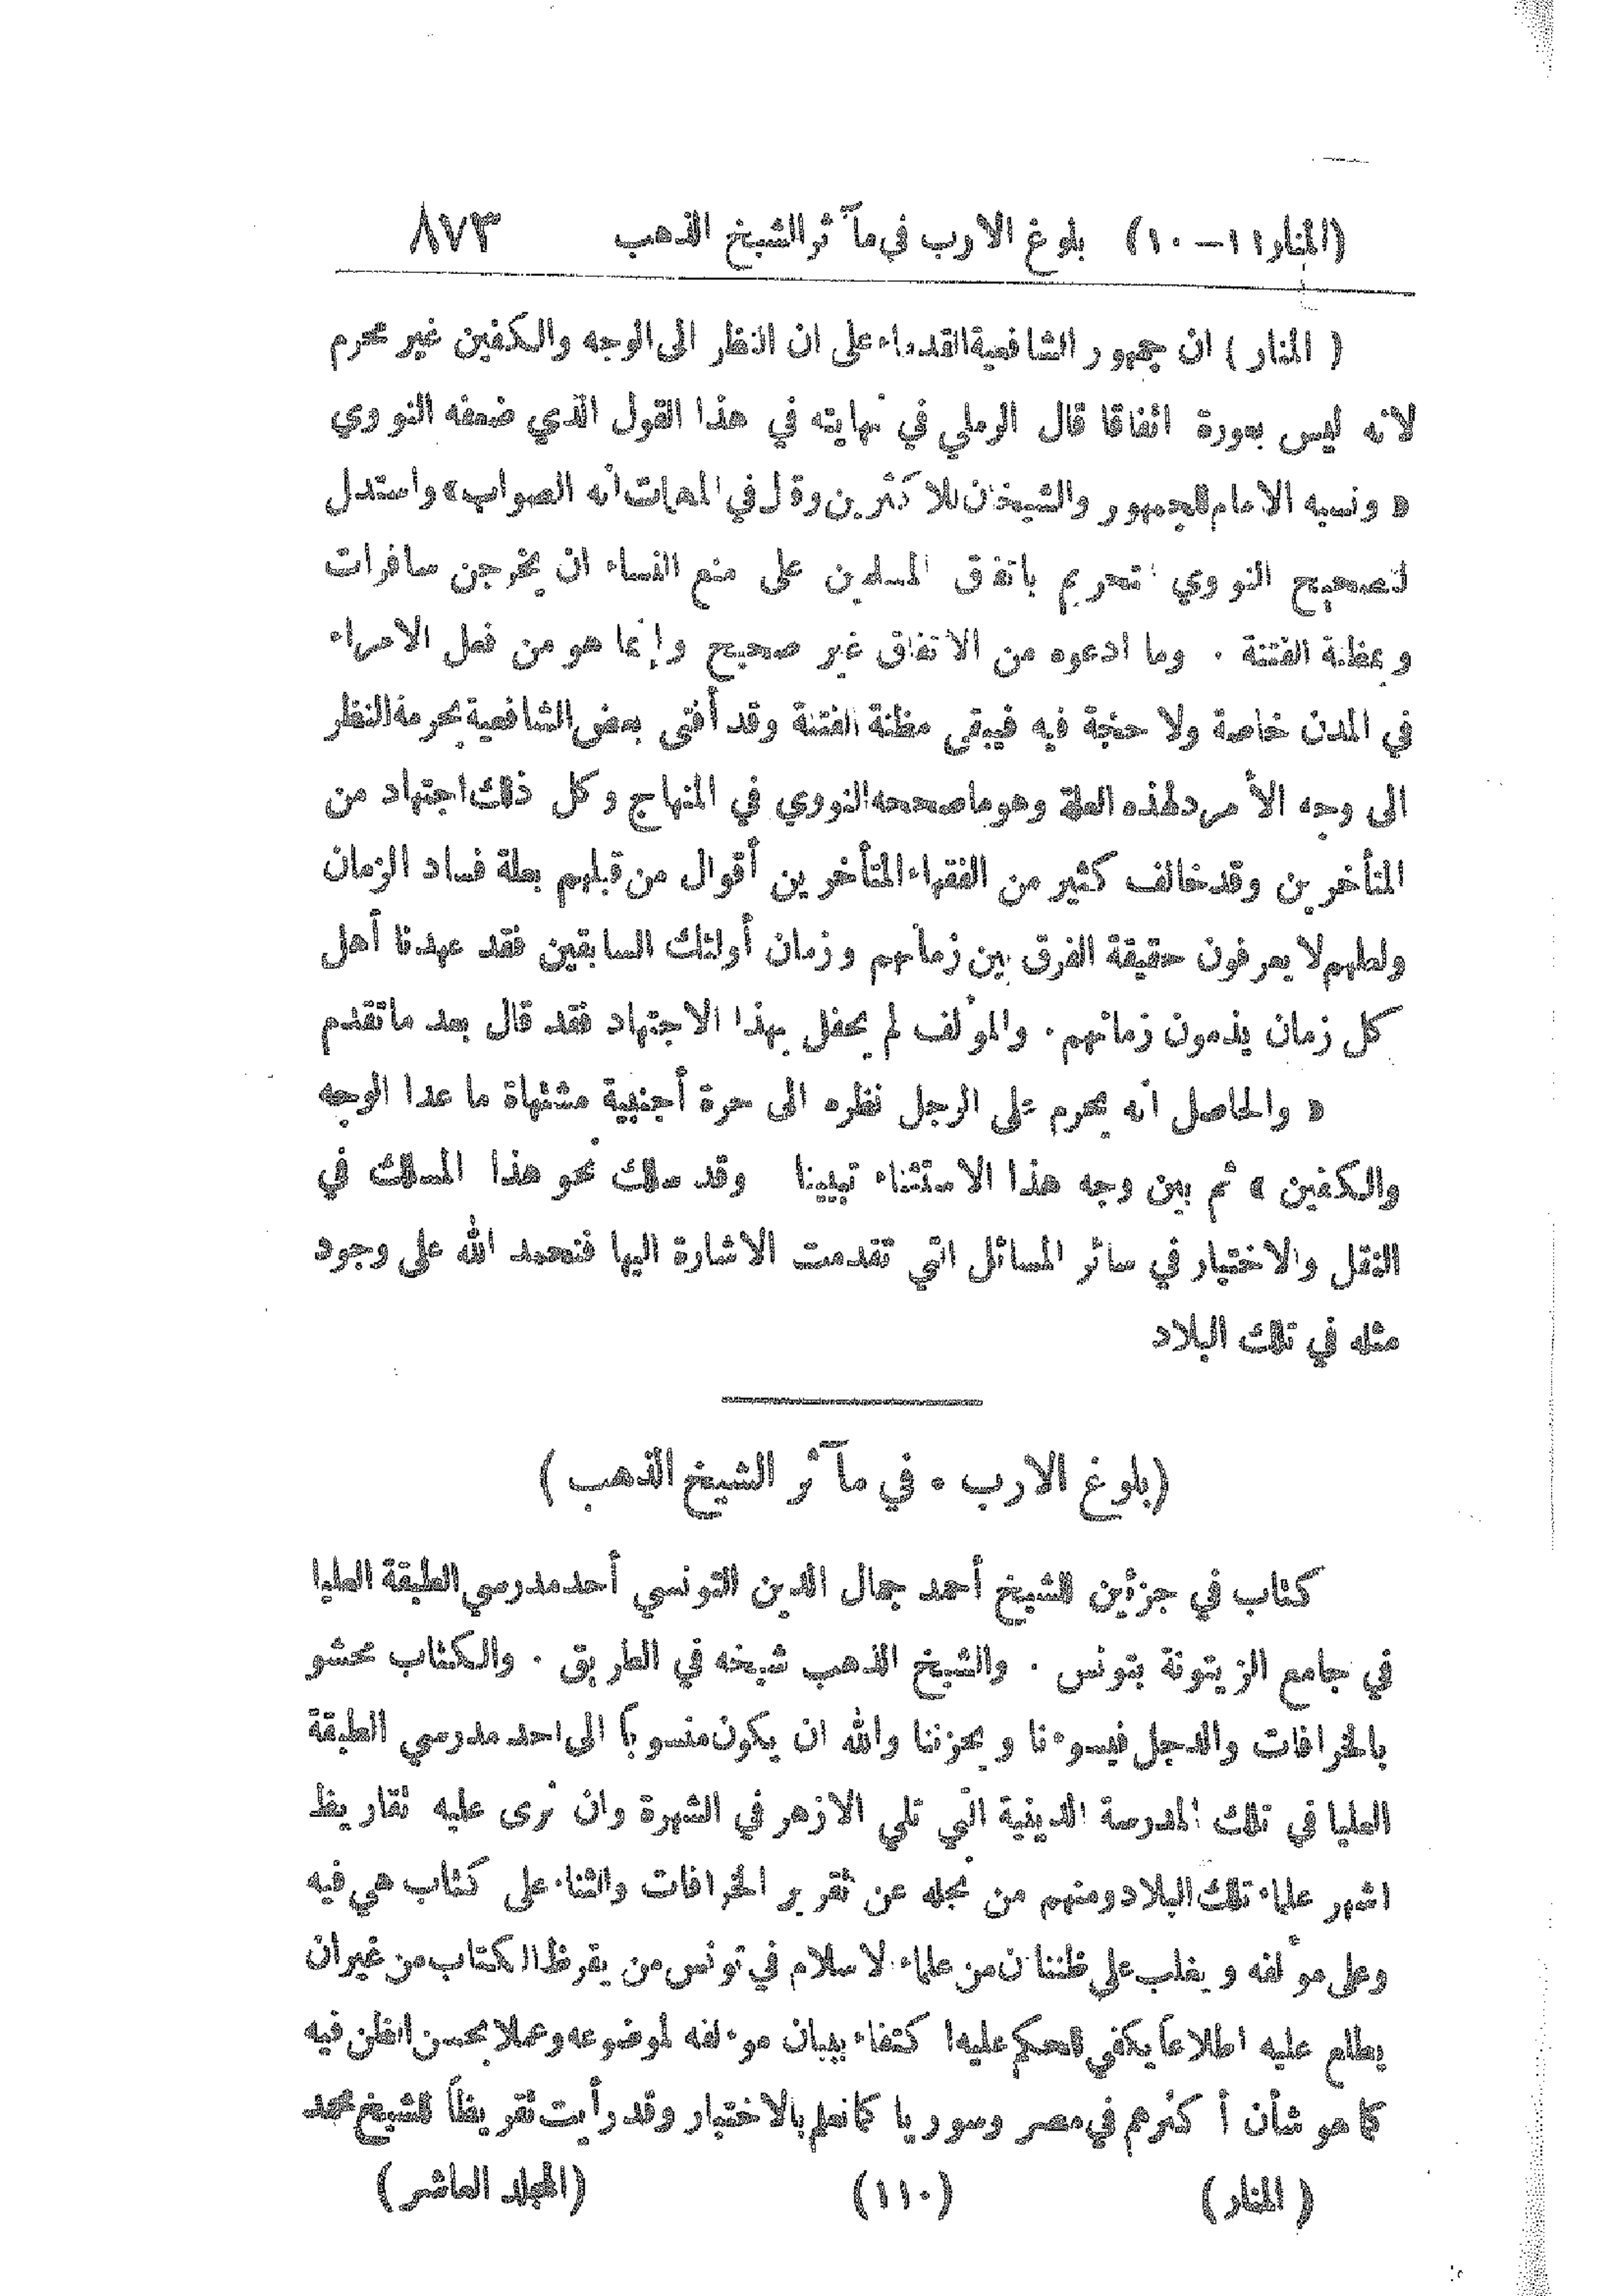 (المنار١١—١٠) بلوغ الارب في مآثر الشيخ الذهب ٨٧٣
( المنار ) ان جمهور الشافعية القدماء على ان النظر الى الوجه والكفين غير محرم
لانه ليس بعورة اتفاقا قال الرملي في نهايته في هذا القول الذي ضعفه النووي
« ونسبه الامام للجمهور والشيخان للاكثرين وقال في المهمات انه الصواب» واستدل
لتصحيح النووي التحريم باتفاق المسلمين على منع النساء ان يخرجن سافرات
وبمظنة الفتنة . وما ادعوه من الاتفاق غير صحيح وإنما هو من فعل الامراء
في المدن خاصة ولا حجة فيه فيبقى مظنة الفتنة وقد أفتى بعض الشافعية بحرمة النظر
الى وجه الأمرد لهذه العلة وهو ما صححه النووي في المنهاج وكل ذلك اجتهاد من
المتأخرين وقد خالف كثير من الفقهاء المتأخرين أقوال من قبلهم بعلة فساد الزمان
ولعلهم لا يعرفون حقيقة الفرق بين زمانهم وزمان أولئك السابقين فقد عهدنا أهل
كل زمان يذمون زمانهم . والمؤلف لم يحفل بهذا الاجتهاد فقد قال بعد ما تقدم
« والحاصل انه يحرم على الرجل نظره الى حرة أجنبية مشتهاة ما عدا الوجه
والكفين » ثم بين وجه هذا الاستثناء تبيينا وقد سلك نحو هذا المسلك في
النقل والاختيار في سائر المسائل التي تقدمت الاشارة اليها فنحمد الله على وجود
مثله في تلك البلاد
(بلوغ الارب . في مآثر الشيخ الذهب )
كتاب في جزؤين للشيخ أحمد جمال الدين التونسي أحد مدرسي الطبقة العليا
في جامع الزيتونة بتونس . والشيخ الذهب شيخه في الطريق . والكتاب محشو
بالخرافات والدجل فيسوءنا ويحزننا والله ان يكون منسوباً الى احد مدرسي الطبقة
العليا في تلك المدرسة الدينية التي تلي الازهر في الشهرة وان نرى عليه تقاريظ
اشهر علماء تلك البلاد ومنهم من نجله عن تقرير الخرافات والثناء على كتاب هي فيه
وعلى مؤلفه ويغلب على ظننا ان من علماء الاسلام في تونس من يقرظ الكتاب من غير ان
يطلع عليه اطلاعاً يكفي للحكم عليه اكتفاء ببيان موءلفه لموضوعه وعملا بحسن الظن فيه
كما هو شأن أكثرهم في مصر وسوريا كما نعلم بالاختبار وقد رأيت تقريظاً للشيخ محمد
( المنار ) (١١٠) (المجلد العاشر)